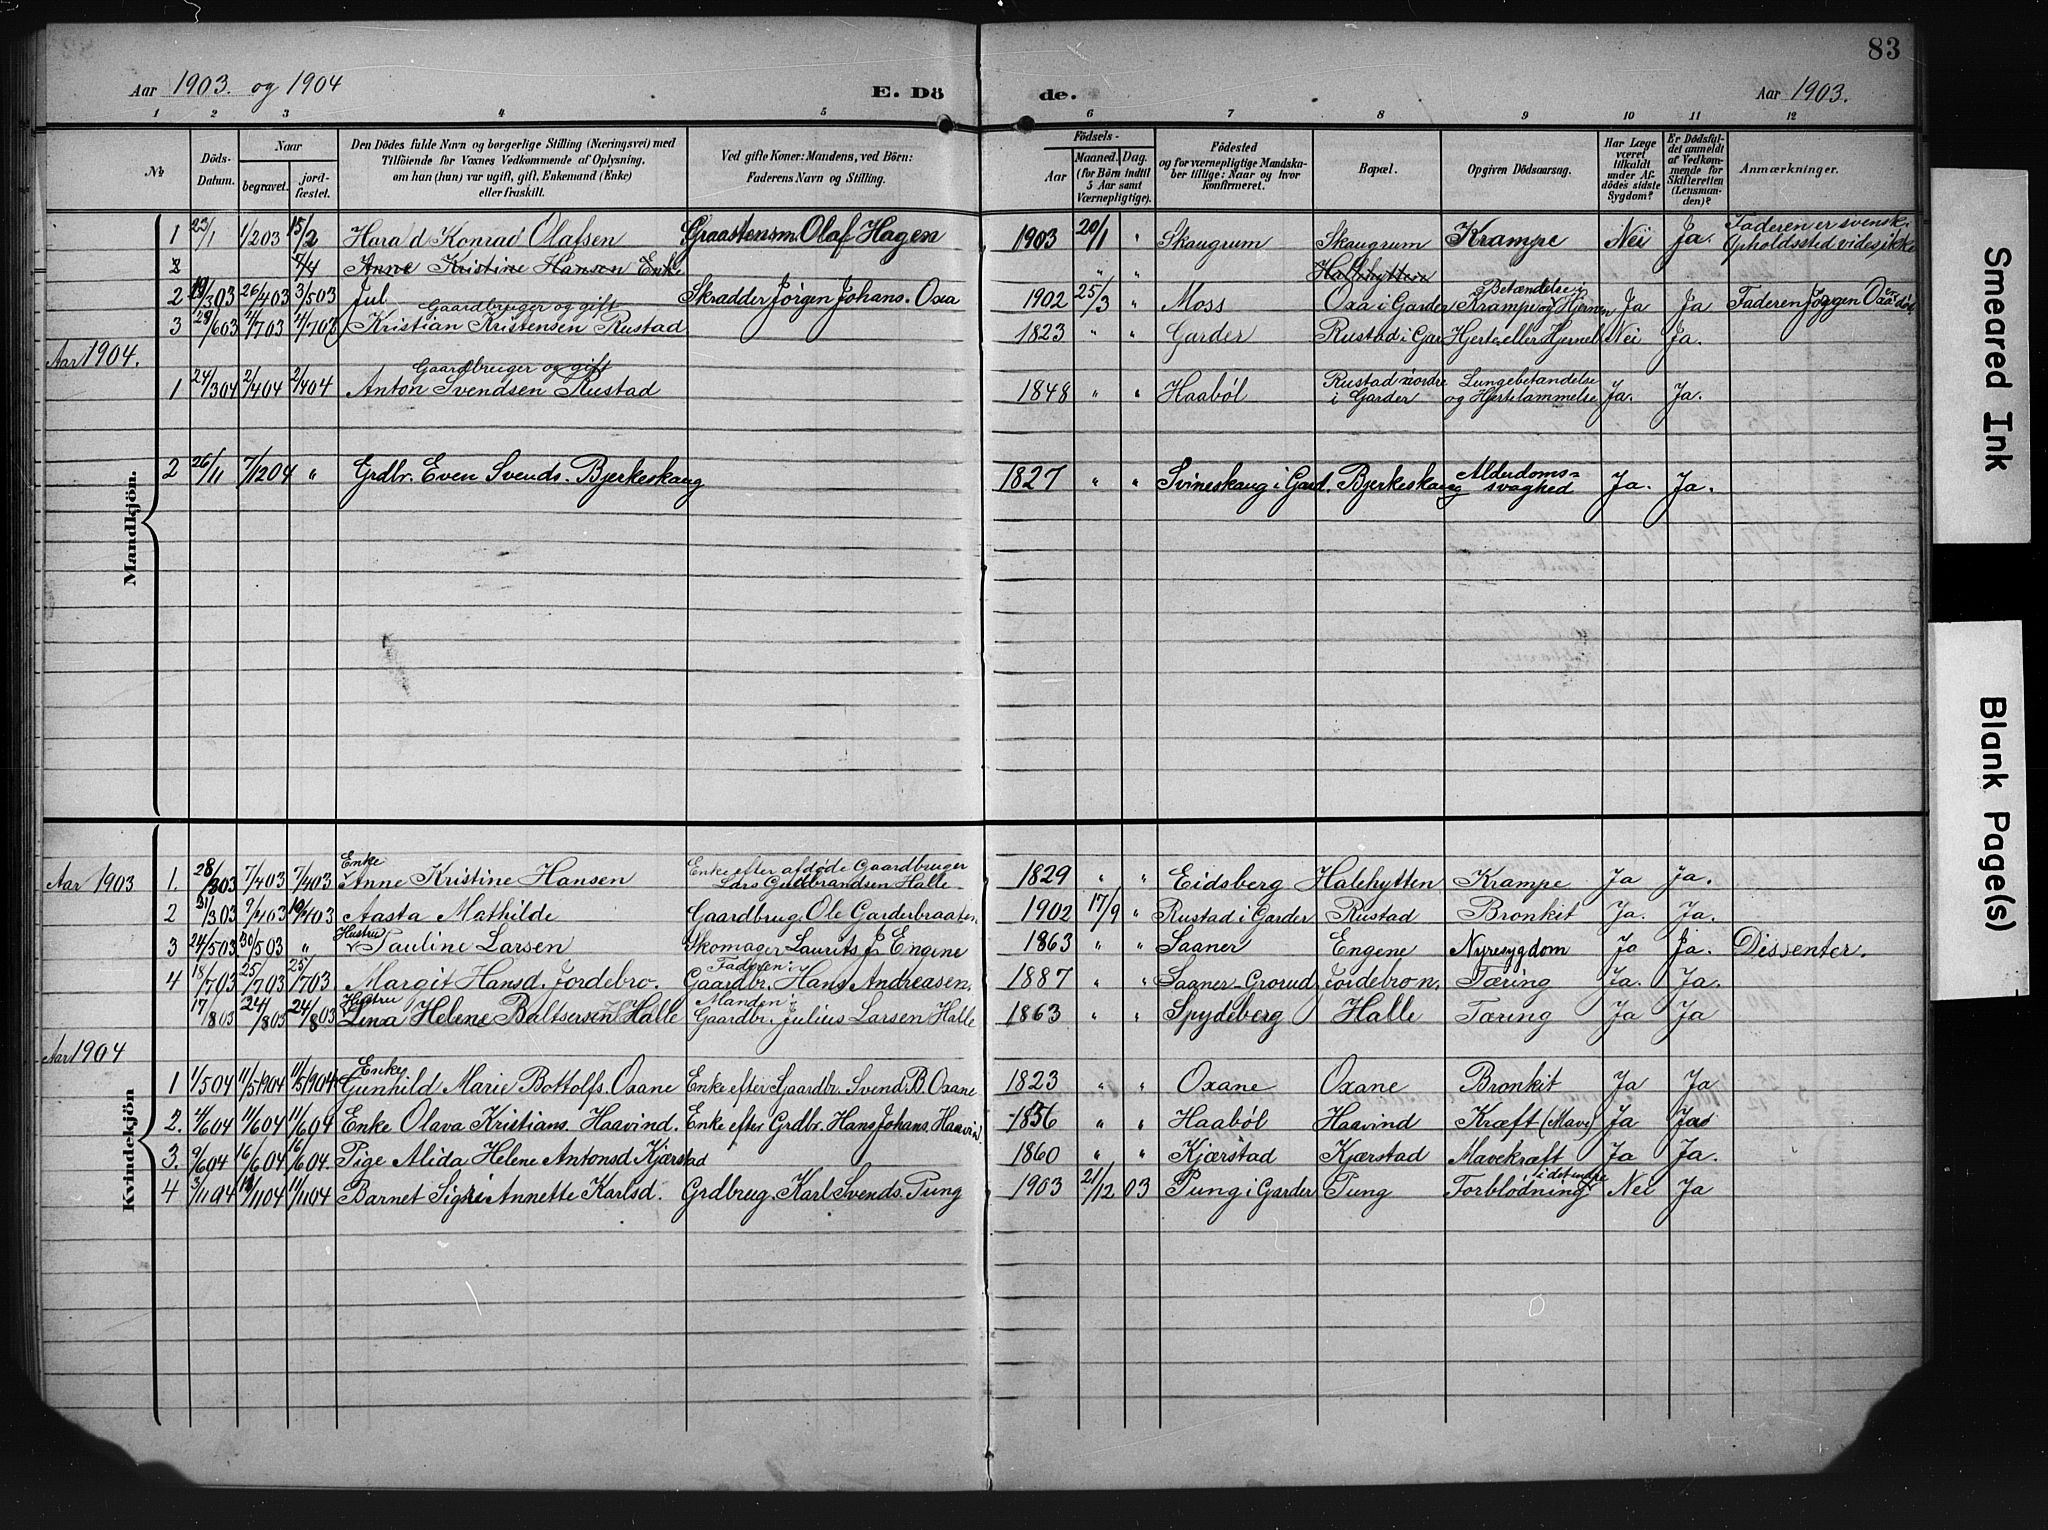 83
Aar 1903. og 1904 E. Dö de. Aar 1903.
1 2 3 4 5 6 7 8 9 10 11 12
№ Döds-Datum. Naar begravet. jordfæstet. Den Dödes fulde Navn og borgerlige Stilling (Næringsvei) med Tilföiende for Voxnes Vedkommende af Oplysning, om han (hun) var ugift, gift, Enkemand (Enke) eller fraskilt. Ved gifte Koner: Mandens, ved Börn: Faderens Navn og Stilling. Födsels- Aar Maaned. Dag. (for Börn indtil 5 Aar samt Værnepligtige). Födested og for værnepligtige Mandskaber tillige: Naar og hvor konfirmeret. Bopæl. Opgiven Dödsaarsag. Har Læge været tilkaldt under Afdödes sidste Sygdom? Er Dödsfaldet anmeldt af Vedkommende for Skifteretten (Lensmanden)? Anmærkninger.
Mandkjön.
1 23/1 1/203 15/2 Harald Konrad Olafsen Graastensm. Olaf Hagen 1903 20/1 " Skaugrum Skaugrum Krampe Nei Ja. Faderen er svensk. Opholdssted vides ikke
2 7/4 Anne Kristine Hansen Enke " " Hallehytten
2 19/303 26/403 3/503 Jul Skrædder Jørgen Johans. Oxa 1902 25/3 " Moss Oxa i Garder Krampe og Betændelse i Hjernen Ja Ja Faderen Jørgen Oxa er død
Gaardbruger og gift
3 28/603 4/703 4/703 Kristian Kristensen Rustad 1823 " " Garder Rustad i Gar Hjerte eller Hjernel Nei Ja.
Aar 1904.
Gaardbruger og gift
1 24/304 2/404 2/404 Anton Svendsen Rustad 1848 " " Haabøl Rustad nordre i Garder Lungebetandelse og Hjertelammelse Ja. Ja.
2 26/11 7/1204 " Grdbr. Even Svends. Bjerkeskaug 1827 " " Svineskaug i Gard. Bjerkeskaug Alderdoms-svaghed Ja. Ja.
Kvindekjön
Aar 1903
1. 28/303 7/403 7/403 Enke Anne Kristine Hansen Enke efter afdøde Gaardbruger Lars Guldbrandsen Halle. 1829 " " Eidsberg Halehytten Krampe Ja Ja.
2 31/303 9/403 19/403 Aasta Mathilde Gaardbrug. Ole Garderbraaten. 1902 17/9 " Rustad i Garder Rustad Bronkit Ja. Ja.
3 24/503 30/503 " Hustru Pauline Larsen Skomager Laurits J. Engene 1863 " " Saaner Engene Nyresygdom Ja Ja. Dissenter.
4 18/703 25/703 25/703 Margit Hansd. Jordebro. Faderen: Gaardbr. Hans Andreasen. 1887 " " Saaner-Grorud Jordebron. Tæring Ja. Ja.
17/803 24/803 24/803 Hustru Lina Helene Baltsersen Halle Manden: Gaardbr. Julius Larsen Halle 1863 " " Spydeberg Halle Tæring Ja Ja
Aar 1904
1 1/504 11/51904 11/51904 Enke Gunhild Marie Bottolfs. Oxane Enke efter Gaardbr. Svend B. Oxane 1823 " " Oxane Oxane Bronkit Ja Ja
2. 4/604 11/604 11/604 Enke Olava Kristians. Haavind. Enke efter Grdbr. Hans Johans. Haavind. 1836 " " Haabøl Haavind Kræft (Mave) Ja Ja
3. 9/604 16/604 16/604. Pige Alida Helene Antonsd Kjærstad 1860 " " Kjærstad Kjærstad Mavekræft Ja Ja.
4 3/1104 11/1104 11/1104 Barnet Sigrid Annette Karlsd. Grdbrug. Karl Svends. Pung 1903 21/12 03 Pung i Garder Pung Forblødning i det indre Nei Ja
Smeared Ink
Blank Page(s)